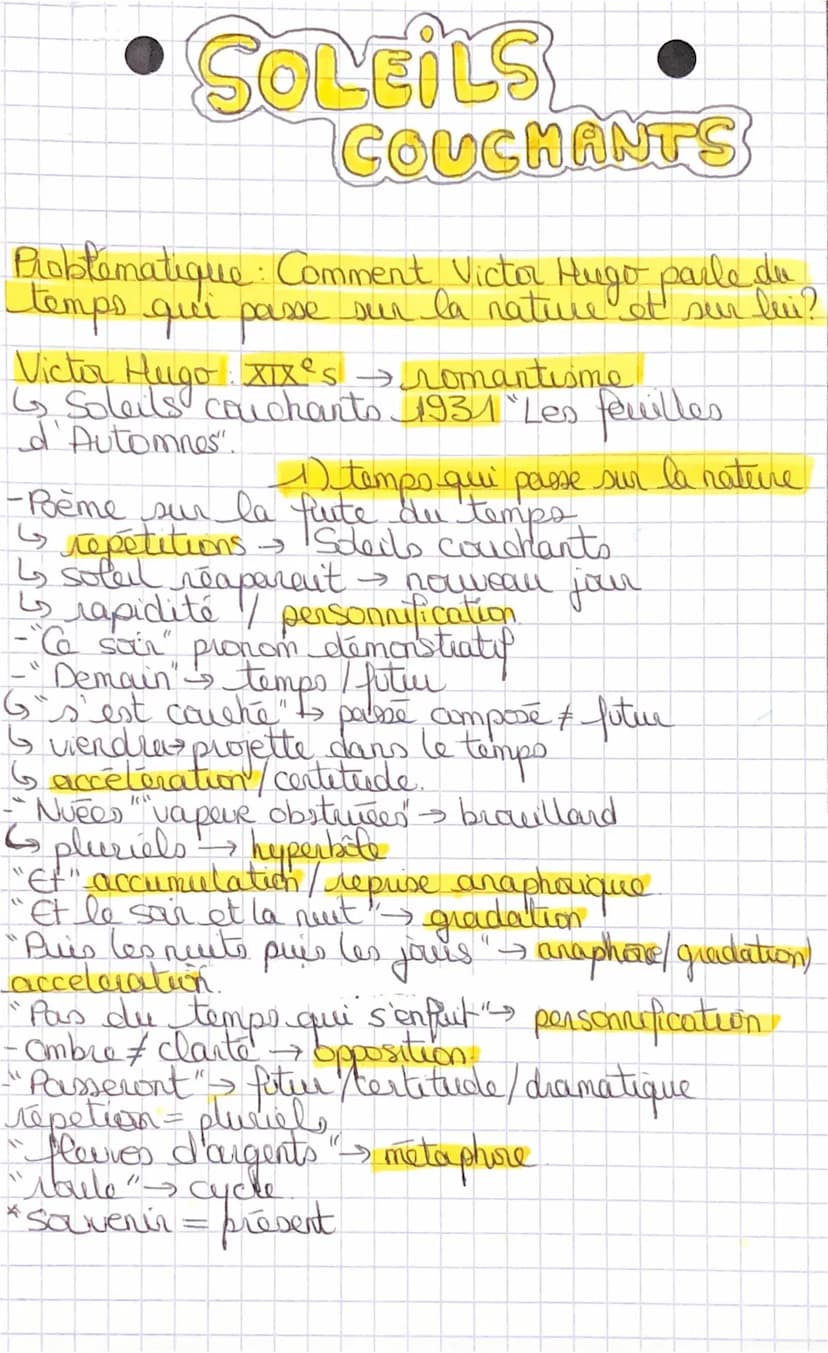 SOLEiLS
COUCHANTS
Problématique : Comment Victor Hugo parle du
temps qui passe sur la nature et sur lui?
Victor Hugo : XIXe s → romantisme
↳ Soleils couchants 1931 "Les feuilles
d'Automnes".
1) temps qui passe sur la nature
-Poème sur la fuite du temps
↳ répétitions → "Soleils couchants
↳ soleil réaparait → nouveau jour
↳ rapidité / personnification
-"Ce soir" pronom démonstratif
-"Demain" → temps / futur
↳ "s'est couché" ↳ passé composé ≠ futur
↳ viendra → projette dans le temps
↳ accélération / certitude.
-"Nuées" "vapeur obstruées" → brouillard
↳ pluriels → hyperbôle
"Et" accumulation / reprise anaphorique
"Et le soir et la nuit" → gradation
"Puis les nuits puis les jours" → anaphore / gradation /
acceleration.
"Pas du temps qui s'enfuit" ↳ personnification
- Ombre ≠ clarté → opposition.
-"Passeront" → futur / certitude / dramatique
répetion = pluriels
"fleuves d'argents" → métaphore
"roule" → cycle
*souvenir = présent